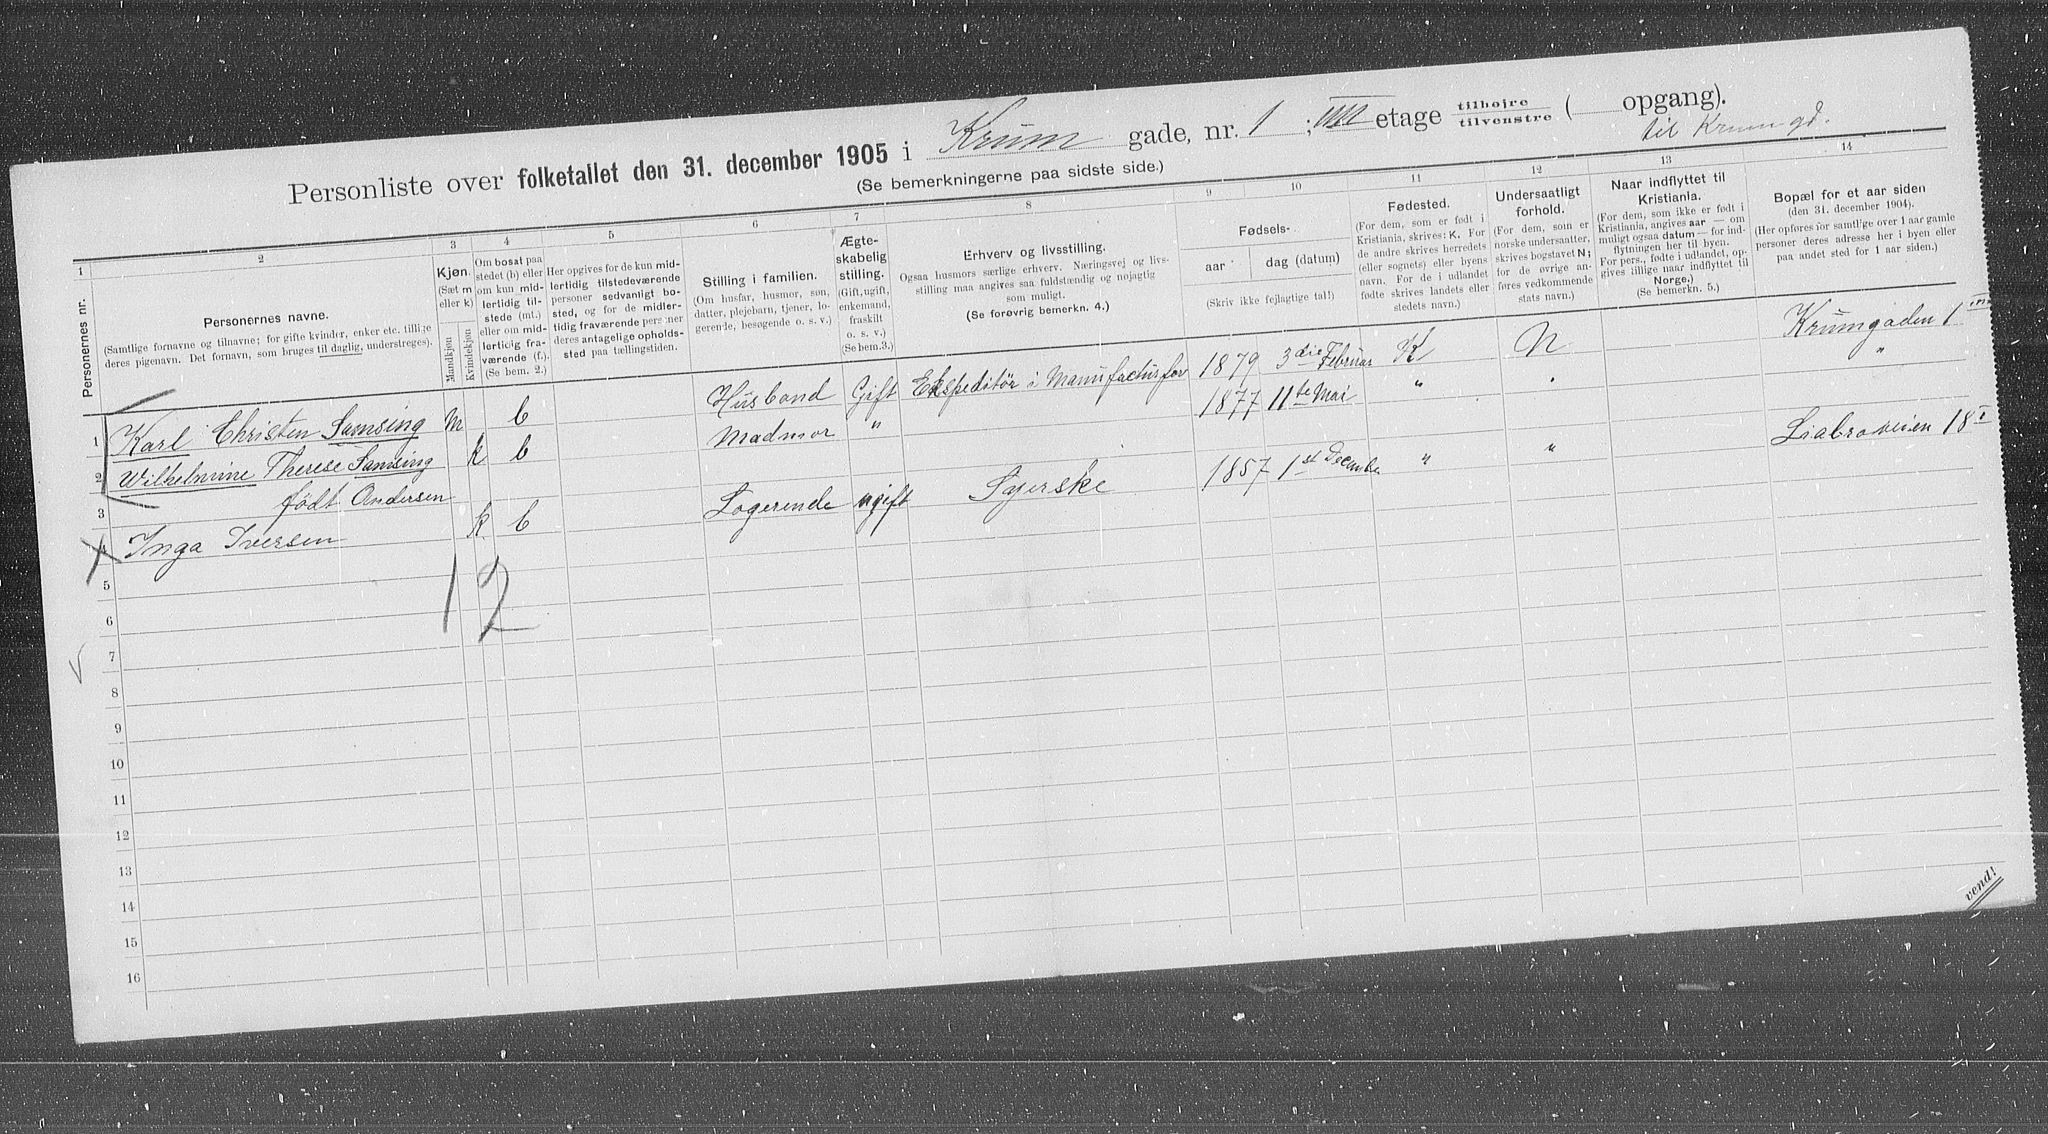 Personliste over folketallet den 31. december 1905 i Krum gade, nr. 1 ; III etage tilhøjre tilvenstre ( opgang).
til Krumgd.
(Se bemerkningerne paa sidste side.)
1 2 3 4 5 6 7 8 9 10 11 12 13 14
Personernes nr.
Personernes navne.
(Samtlige fornavne og tilnavne; for gifte kvinder, enker etc. tillige
deres pigenavn. Det fornavn, som bruges til daglig, understreges).
Kjøn.
(Sæt m
eller k)
Mandkjøn
Kvindekjøn
Om bosat paa
stedet (b) eller
om kun mid-
lertidig til-
stede (mt.)
eller om mid-
lertidig fra-
værende (f.).
(Se bem. 2.)
Her opgives for de kun mid-
lertidig tilstedeværende
personer sedvanligt bo-
sted, og for de midler-
tidig fraværende personer
deres antagelige opholds-
sted paa tællingstiden.
Stilling i familien.
(Om husfar, husmor, søn,
datter, plejebarn, tjener, lo-
gerende, besøgende o. s. v.)
Ægte-
skabelig
stilling.
(Gift, ugift,
enkemand,
fraskilt
o. s. v.)
(Se bem.3.)
Erhverv og livsstilling.
Ogsaa husmors særlige erhverv. Næringsvej og livs-
stilling maa angives saa fuldstændig og nøjagtig
som muligt.
(Se forøvrig bemerkn. 4.)
Fødsels-
aar dag (datum)
(Skriv ikke fejlagtige tal!)
Fødested.
(For dem, som er født i
Kristiania, skrives: K. For
de andre skrives herredets
(eller sognets) eller byens
navn. For de i udlandet
fødte skrives landets eller
stedets navn.)
Undersaatligt
forhold.
(For dem, som er
norske undersaatter,
skrives bogstavet N;
for de øvrige an-
føres vedkommende
stats navn.)
Naar indflyttet til
Kristiania.
(For dem, som ikke er født i
Kristiania, angives aar — om
muligt ogsaa datum — for ind-
flytningen her til byen.
For pers., fødte i udlandet, op-
gives tillige naar indflyttet til
Norge.)
(Se bemerkn. 5.)
Bopæl for et aar siden
(den 31. december 1904).
(Her opføres for samtlige over 1 aar gamle
personer deres adresse her i byen eller
paa andet sted for 1 aar siden.)
1 Karl Christen Samsing m b Husbond Gift Ekspeditör i Manufacturfor 1879 3die Februar K N Krumgaden 1
2 Wilhelmine Therese Samsing k b Madmor " 1877 11te Mai " " "
3 født Andersen
4 Inga Iversen k b Logerende ugift Syerske 1857 1st December " " Liabroveien 18 I
5
12
6
7
8
9
10
11
12
13
14
15
16
vend!